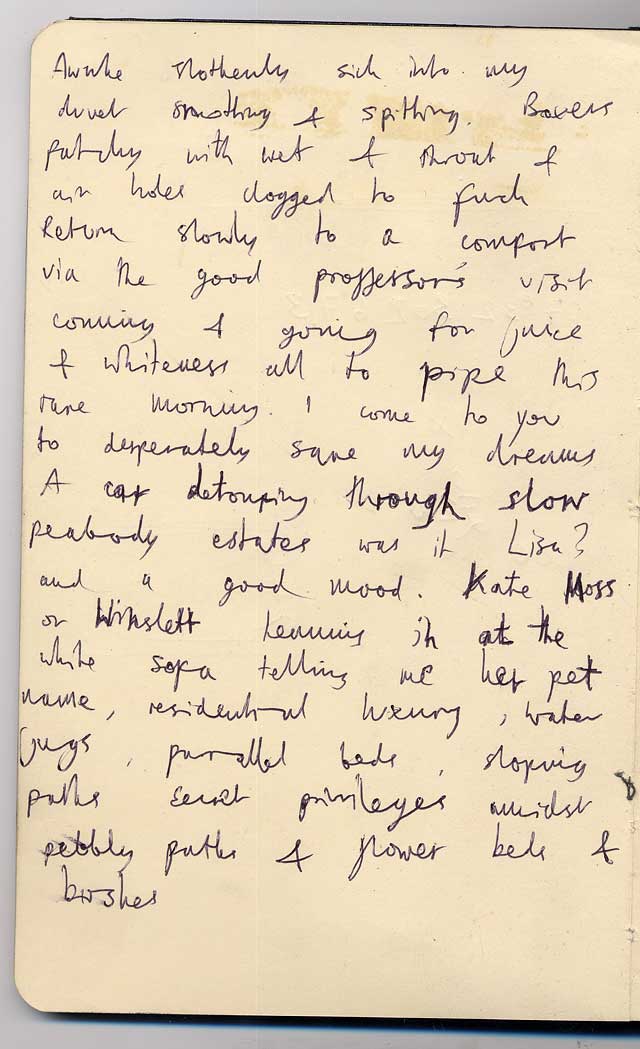 Awake slothenly sick into my
duvet snotting & spitting. Boxers
patchy with wet & throat &
air holes clogged to fuck
Return slowly to a comfort
via the good proffessor's visit
coming & going for juice
& whiteness all to pipe this
rare morning. I come to you
to desperately save my dreams
A car detouring through slow
peabody estates was it Lisa?
and a good mood. Kate Moss
or Winslett leaning in at the
white sofa telling me her pet
name, residential luxury, water
jugs, parallel beds, sloping
paths secret privileges amidst
pebbly paths & flower beds &
bushes